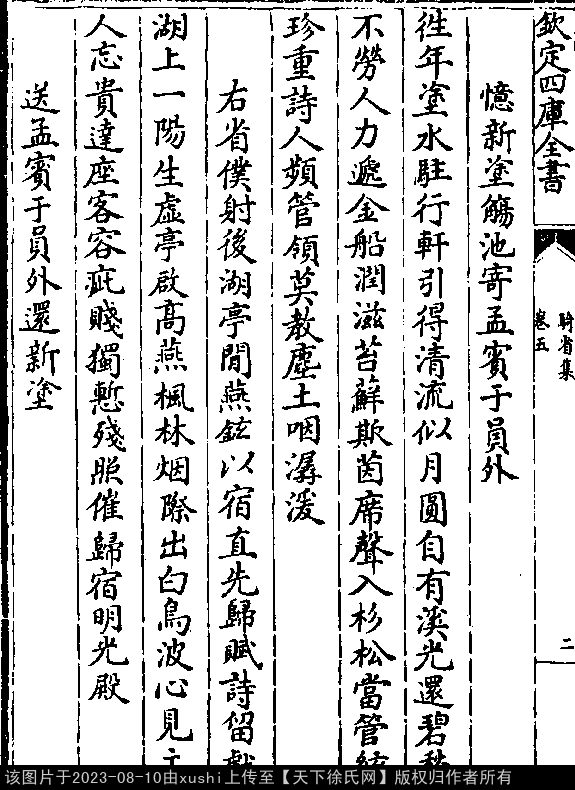 欽定四庫全書
騎省集
卷五
二
憶新塗觴池寄孟賓于員外
徃年塗水駐行軒引得清流似月圓自有溪光還碧
不勞人力遞金船潤滋苔蘚欺茵席聲入杉松當管絃
珍重詩人頻管領莫教塵土咽潺湲
右省僕射後湖亭閒燕鉉以宿直先歸賦詩留獻
湖上一陽生虛亭啟髙燕楓林烟際出白鳥波心見
人忘貴達座客容疵賤獨慙殘照催歸宿明光殿
送孟賓于員外還新塗
该图片于2023-08-10由xushi上传至【天下徐氏网】版权归作者所有